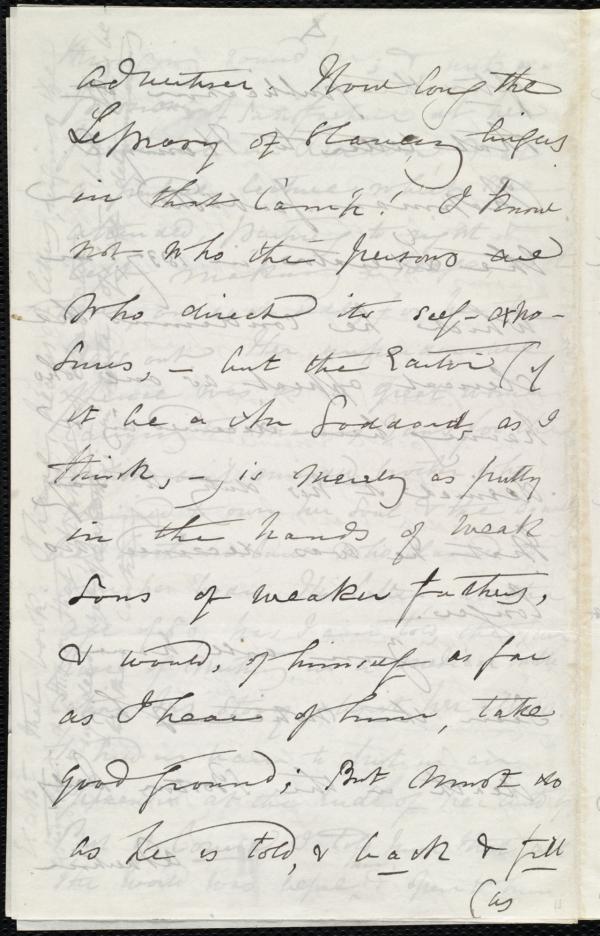 Advertiser. How long the
Leprosy of Slavery lingers
in that Camp! I know
not who the persons are
who direct its self-expo-
sures, - but the Editor (if
it be a Mr Goddard, as I
think, - is merely as putty
in the hands of weak
Sons of weaker fathers,
& would, of himself as far
as I hear of him, take
good ground; But must do
as he is told, & back & fill
(as